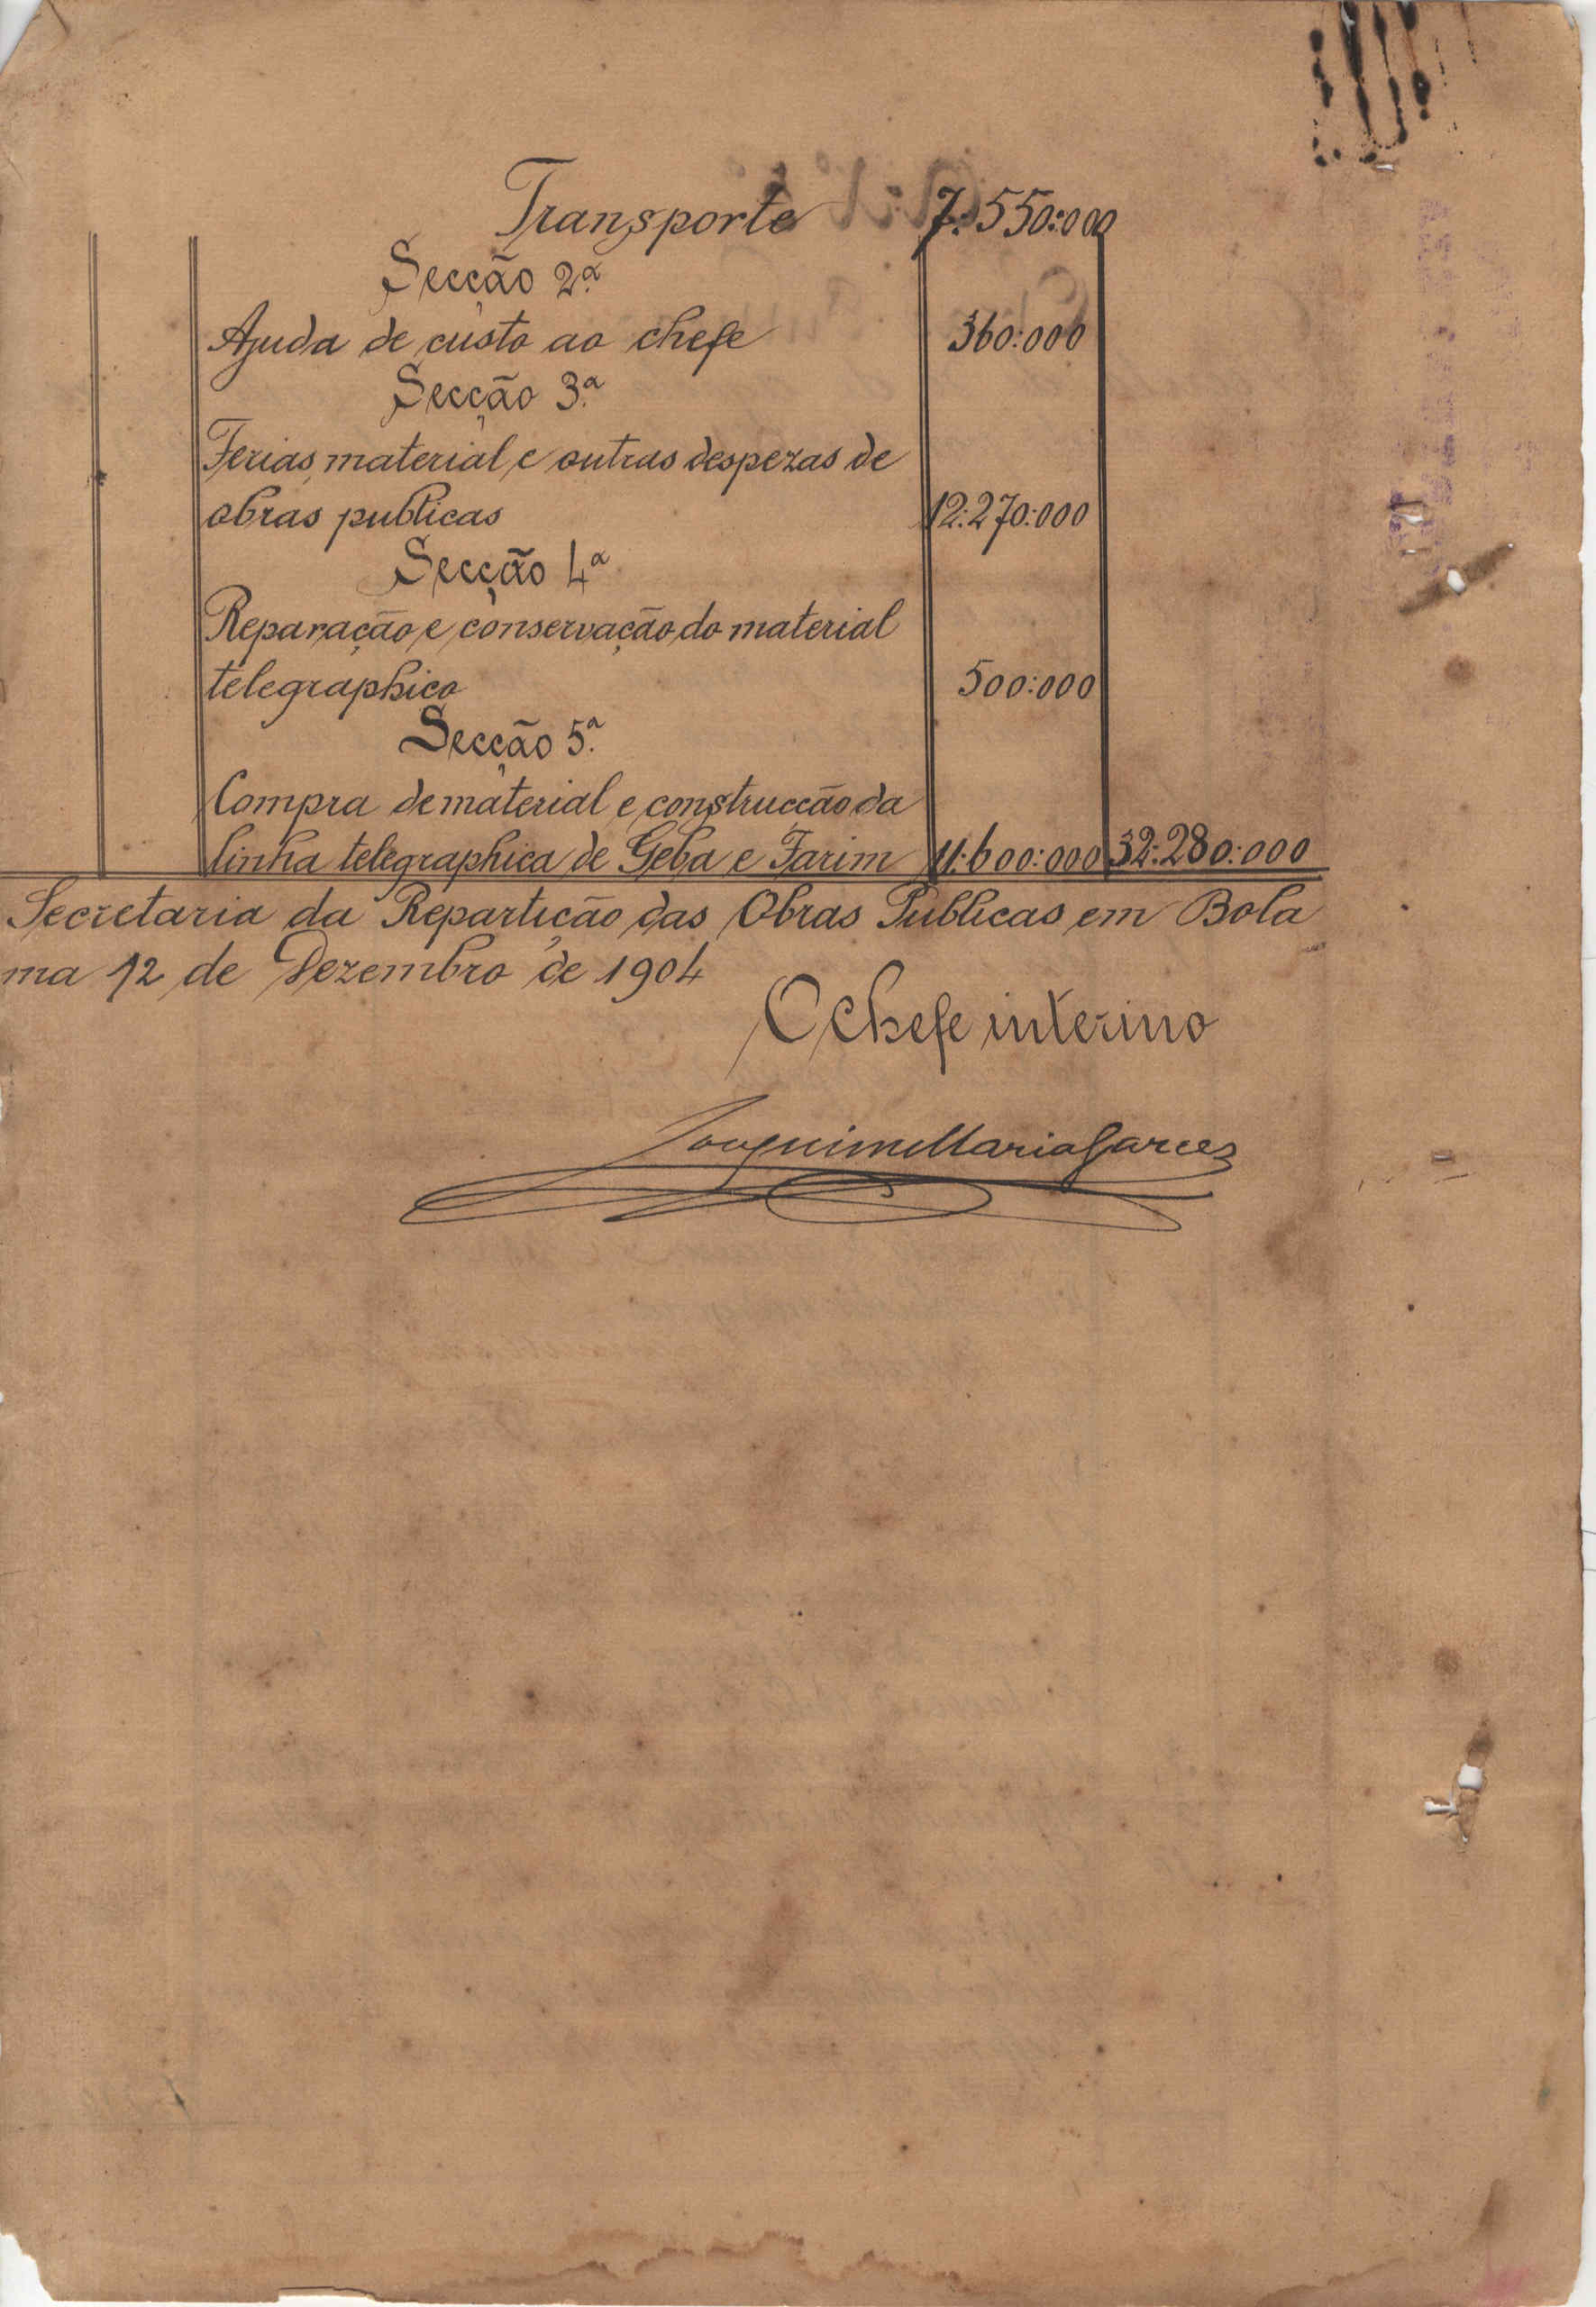 Transporte 7:550:000
Secção 2.ª
Ajuda de custo ao chefe 360:000
Secção 3.ª
Ferias, material e outras despezas de
obras publicas 12:270:000
Secção 4ª
Reparação e conservação do material
telegraphico 500:000
Secção 5.ª
Compra de material e construcção da
linha telegraphica de Geba e Farim 11:600:000 32:280:000
Secretaria da Repartição das Obras Publicas em Bola
ma 12 de Dezembro de 1904
O Chefe interino
Joaquim Maria Garcez